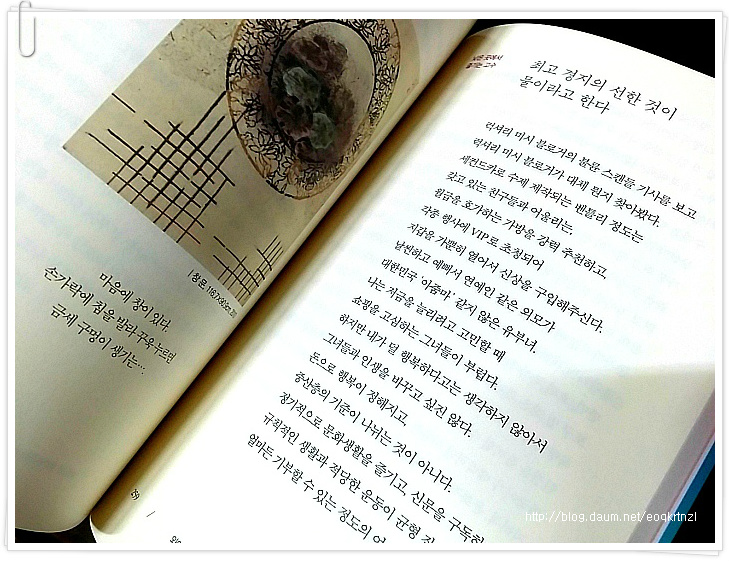 창문, 116.7X80.9cm, 2011
마음에 창이 있다.
손가락에 침을 발라 꾸욱 누르면
금세 구멍이 생기는….
최고 경지의 선한 것이
물이라고 한다
럭셔리 미시 블로거의 불륜 스캔들 기사를 보고
럭셔리 미시 블로거가 대체 뭔지 찾아봤다.
세컨드카로 수제 제작되는 벤틀리 정도는
갖고 있는 친구들과 어울리는,
월급을 호가하는 가방을 강력 추천하고,
각종 행사에 VIP로 초청되어
지갑을 가뿐히 열어서 신상을 구입해주신다.
날씬하고 예뻐서 연예인 같은 외모가
대한민국 '아줌마' 같지 않은 유부녀.
나는 저금을 늘리려고 고민할 때
쇼핑을 고심하는 그녀들이 부럽다.
하지만 내가 덜 행복하다고는 생각하지 않아서
그녀들과 인생을 바꾸고 싶진 않다.
돈으로 행복이 정해지고,
중산층의 기준이 나뉘는 것이 아니다.
정기적으로 문화생활을 즐기고, 신문을 구독하
규칙적인 생활과 적당한 운동이 균형
얼마든 기부할 수 있는 정도의 여
159
http://blog.daum.net/eoqkrtnzl